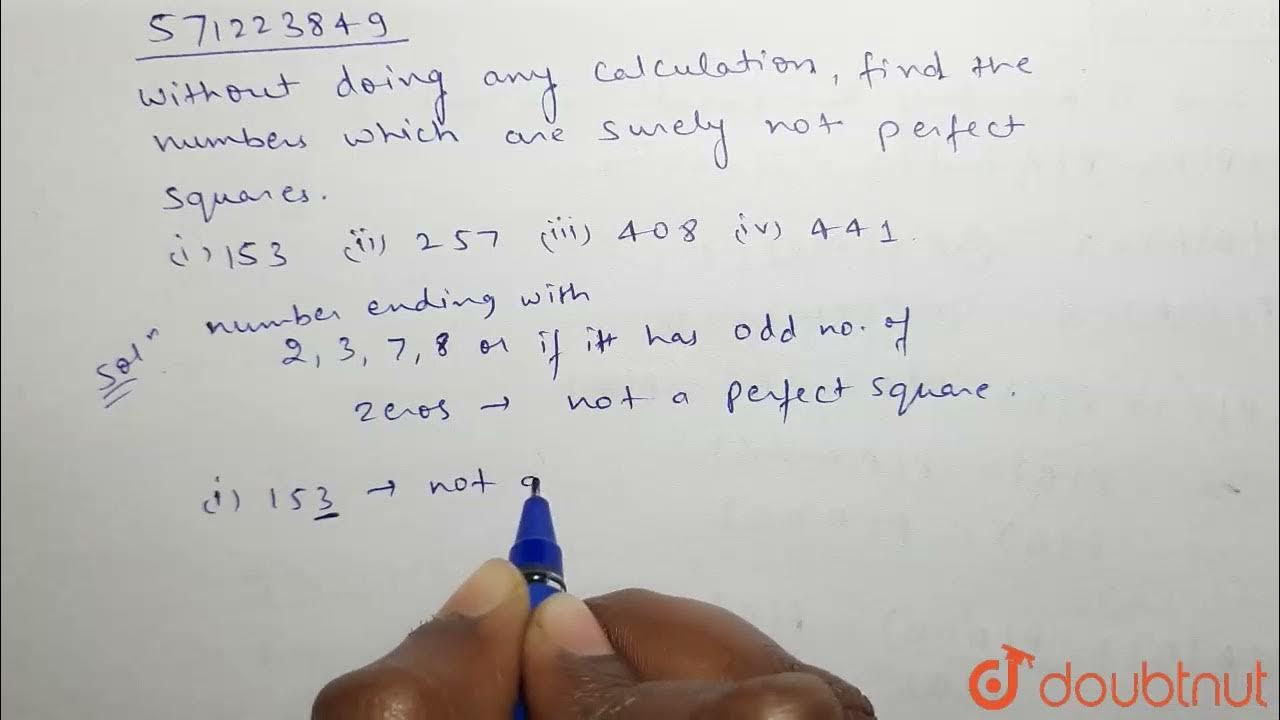 571223849
without doing any calculation, find the
numbers which are surely not perfect
squares.
(i) 153 (ii) 257 (iii) 408 (iv) 441.
Solⁿ number ending with
2, 3, 7, 8 or if it has odd no. of
zeros → not a perfect square.
(i) 153 → not a
doubtnut